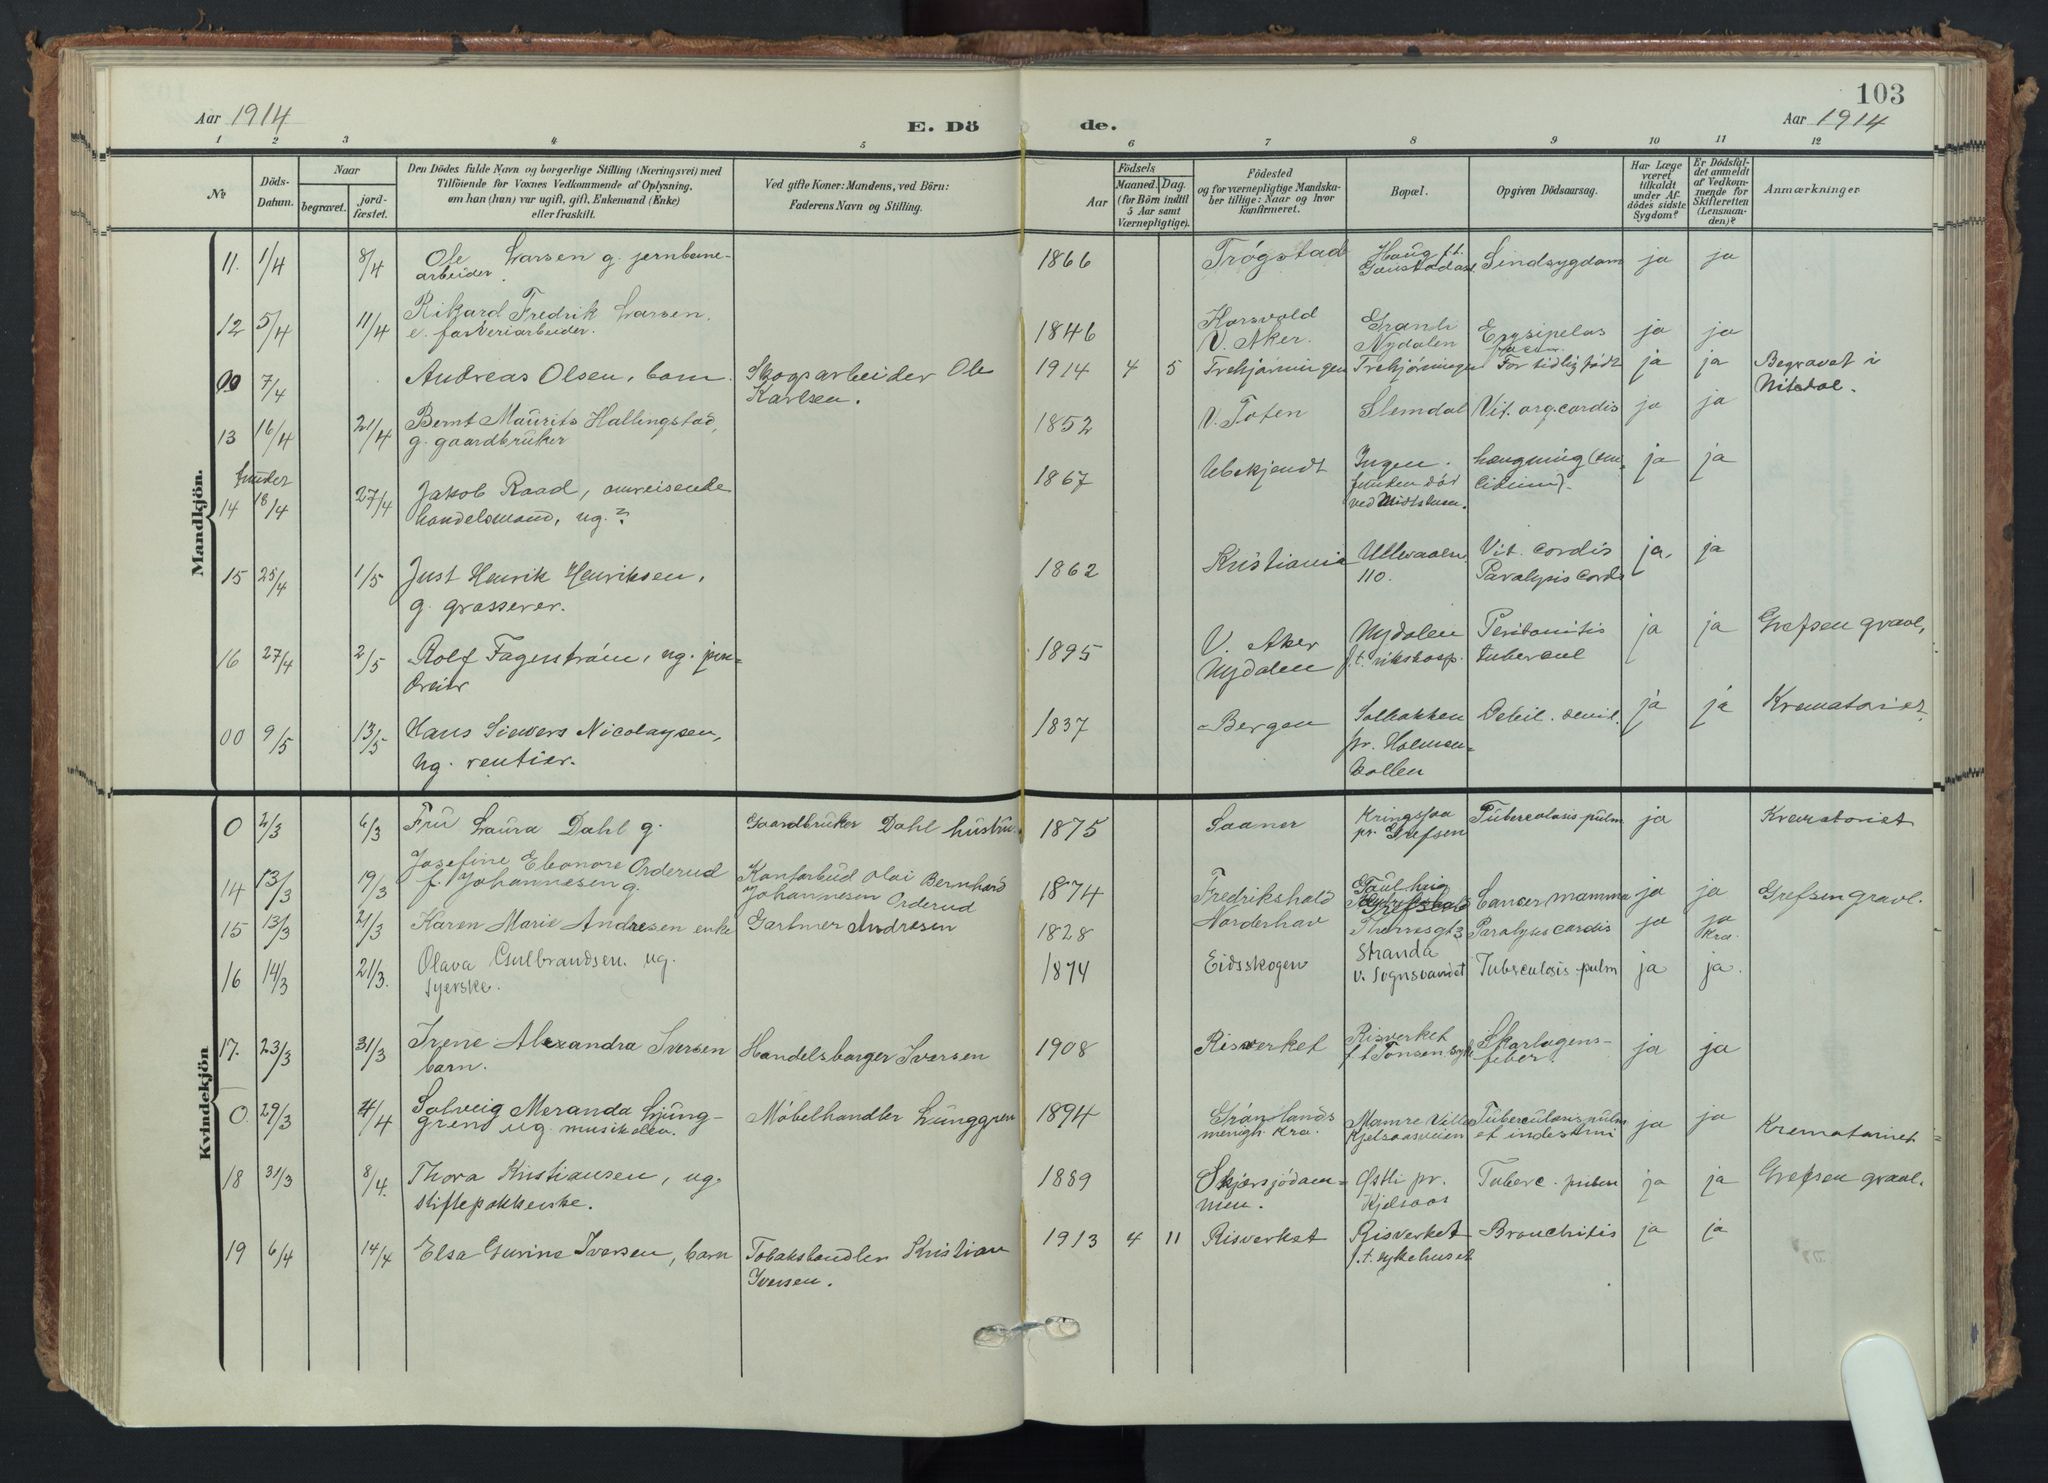 103
Aar 1914
E. Dö de.
Aar 1914
1 2 3 4 5 6 7 8 9 10 11 12
No
Döds-Datum.
Naar
begravet.
jord-fæstet.
Den Dödes fulde Navn og borgerlige Stilling (Næringsvei) med
Tilföiende for Voxnes Vedkommende af Oplysning,
om han (hun) var ugift, gift, Enkemand (Enke)
eller fraskilt.
Ved gifte Koner: Mandens, ved Börn:
Faderens Navn og Stilling.
Födsels
Aar
Maaned. Dag.
(for Börn indtil
5 Aar samt
Værnepligtige).
Födested
og for værnepligtige Mandska-
ber tillige: Naar og hvor
konfirmeret.
Bopæl.
Opgiven Dödsaarsag.
Har Læge
været
tilkaldt
under Af-
dödes sidste
Sygdom?
Er Dödsfal-
det anmeldt
af Vedkom-
mende for
Skifteretten
(Lensman-
den)?
Anmærkninger
Mandkjön.
11. 1/4 8/4 Ole Larsen g. jernbane- 1866 Trøgstad Haug f.t. Sindsygdom ja ja
arbeider.
12 5/4 11/4 Rikard Fredrik Larsen, 1846 Korsvold Granli Erysipelas ja ja
e. farveriarbeider. V. Aker. Nydalen
00 7/4 Andreas Olsen, barn. Skogsarbeider Ole 1914 4 5 For tidlig født ja ja Begravet i
Karlsen. Nitedal.
13 16/4 21/4 Bernt Maurits Hallingstad, 1852 V. Toten Slemdal Vit. org. cordis ja ja
g. gaardbruker
funder
14 18/4 27/4 Jakob Raad, omreisende 1867 Ubekjendt Ingen. hængning ja ja
handelsmand, ug.? funden død
15 25/4 1/5 Just Henrik Henriksen, 1862 Kristiania Ullevaalen Vit. cordis ja, ja
g. grosserer. 110. Paralysis cordis
16 27/4 2/5 Rolf Fagerstrøm, ug. 1895 V. Aker Nydalen Peritonitis ja ja Grefsen gravl,
Nydalen f.t. rikshosp. tubercul
00 9/5 13/5 Hans Siewers Nicolaysen, 1837 Bergen Solbakken Debil. senil. ja ja Krematoriet
ug. rentier. pr. Holmen-
kollen
Kvindekjön
0 2/3 6/3 Fru Laura Dahl g. Gaardbruker Dahl hustru 1875 Saaner Tuberculosis pulm ja Krematoriet
pr. Grefsen
14 13/3 19/3 Josefine Eleonore Orderud Kontorbud Olai Bernhard 1874 Fredrikshald Cancer mamma ja ja Grefsen gravl.
f. Johannesen g. Johannesen Orderud
15 13/3 21/3 Karen Marie Andresen enke Gartner Andresen 1828 Norderhav Paralysis cordis ja ja
Kra.
16 14/3 21/3. Olava Gulbrandsen. ug. 1874 Eidsskogen Stranda Tuberculosis pulm ja ja.
Syerske. v. Sognsvandet
17. 23/3 31/3 Irene Alexandra Iversen Handelsborger Iversen 1908 Risverket Risverket Skarlagens- ja ja
barn. feber.
0. 29/3 4/4 Solveig Meranda Ljung- Møbelhandler Ljunggren 1894 Grønlands Mamre Villa Tuberculosis pulm ja ja Krematoriet
gren ug. musikelev. menigh. Kra. Kjelsaasveien
18 31/3 8/4. Thora Kristiansen, ug. 1889 Skjærsjødam- Østli pr. Tuberc. pulm ja ja Grefsen gravl.
stiftepakkerske. men. Kjelsaas
19 6/4 14/4 Elsa Gurine Iversen, barn Tobakshandler Kristian 1913 4 11 Risverket Risverket Bronchitis ja ja
Iversen. f.t. sykehuset